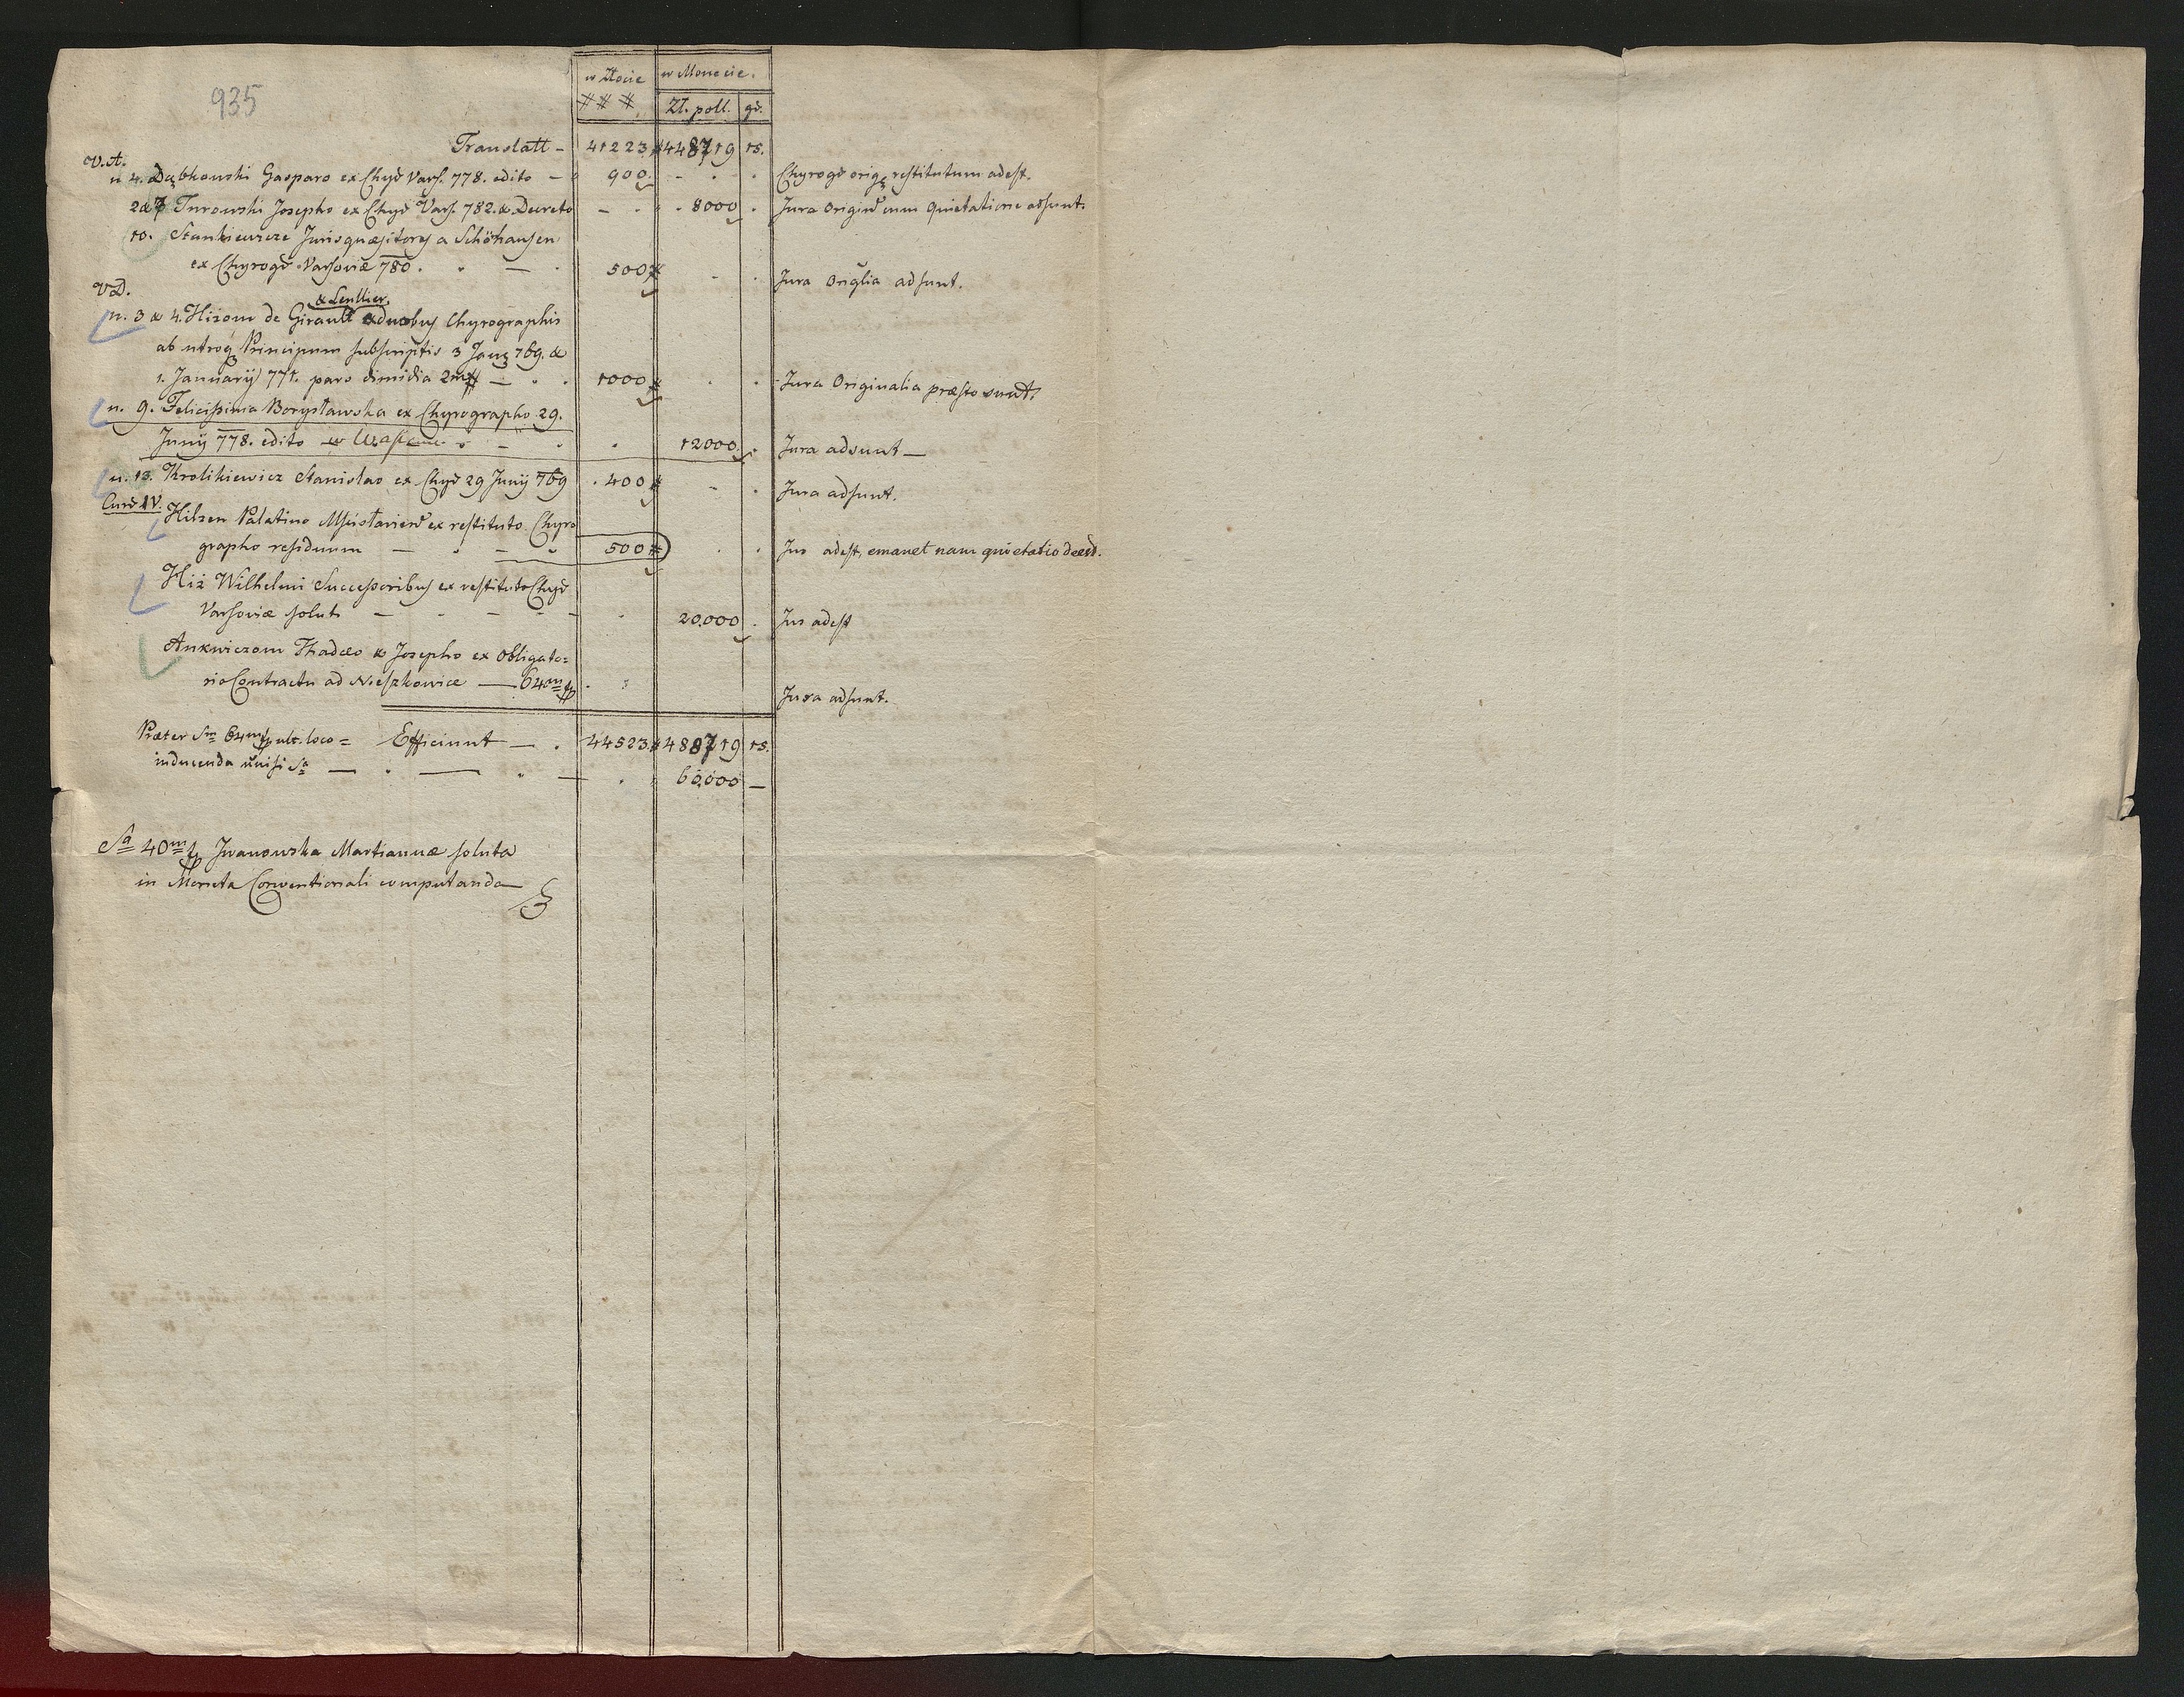 935
w Złocie w Monecie.
# # # Zł. poll. gr.
Translatt – 41223# 448719 15.
V. A.
n 4. Dąbkowski Gasparo ex Chyr̃ Vars. 778. edito – 900. – . . Chyrogr̃ orig restitutum adest.
2 & 7 Turowski Josepho ex Chyr̃ Vars. 782. & Decreto – . . 8000 . Jura Origin̄ cum Quietatione adsunt.
10. Stankiewicze Jurisquæsitores a Schöhausen
ex Chyrogr̃ Varsoviæ 780. . – . 500# . . Jura Origlia adsunt.
V D.
& Lenllier
n. 3 & 4. Hizom de Girault ex duobus Chyrographis
ab utroq Principum subscriptis 3 Jany 769. &
1. January 771. pars dimidia 2m# – . . 1000# . . Jura Originalia præsto sunt.
n. 9. Felicissima Borysławska ex Chyrographo 29.
Juny 778. edito w – . . 12000. . Jura adsunt –
n. 13. Krolikiewicz Stanislao ex Chyr̃ 29 Juny 769 . 400# – . Jura adsunt.
IV.
Hilzen Palatino ex restituto Chyro
grapho residuum – . – . 500# . . Jus adest, emanet nam quietatio deest.
Hiż Wilhelmi Successoribus ex restituto Chyr̃
Varsoviæ soluti – - – – – . 20.000 . Jus adest
Ankwiczom Thadæo & Josepho ex Obligato=
rio Contractu ad Nieszkowice — 64m f . . Jura adsunt.
Præter Sm 64m f ult. loco = Efficiunt – . 44523# 488719 15.
inducenda Sa — . — . — . 60,000 –
Sa 40m f Iwanowska Martiannæ soluta
in Moneta Conventionali computanda